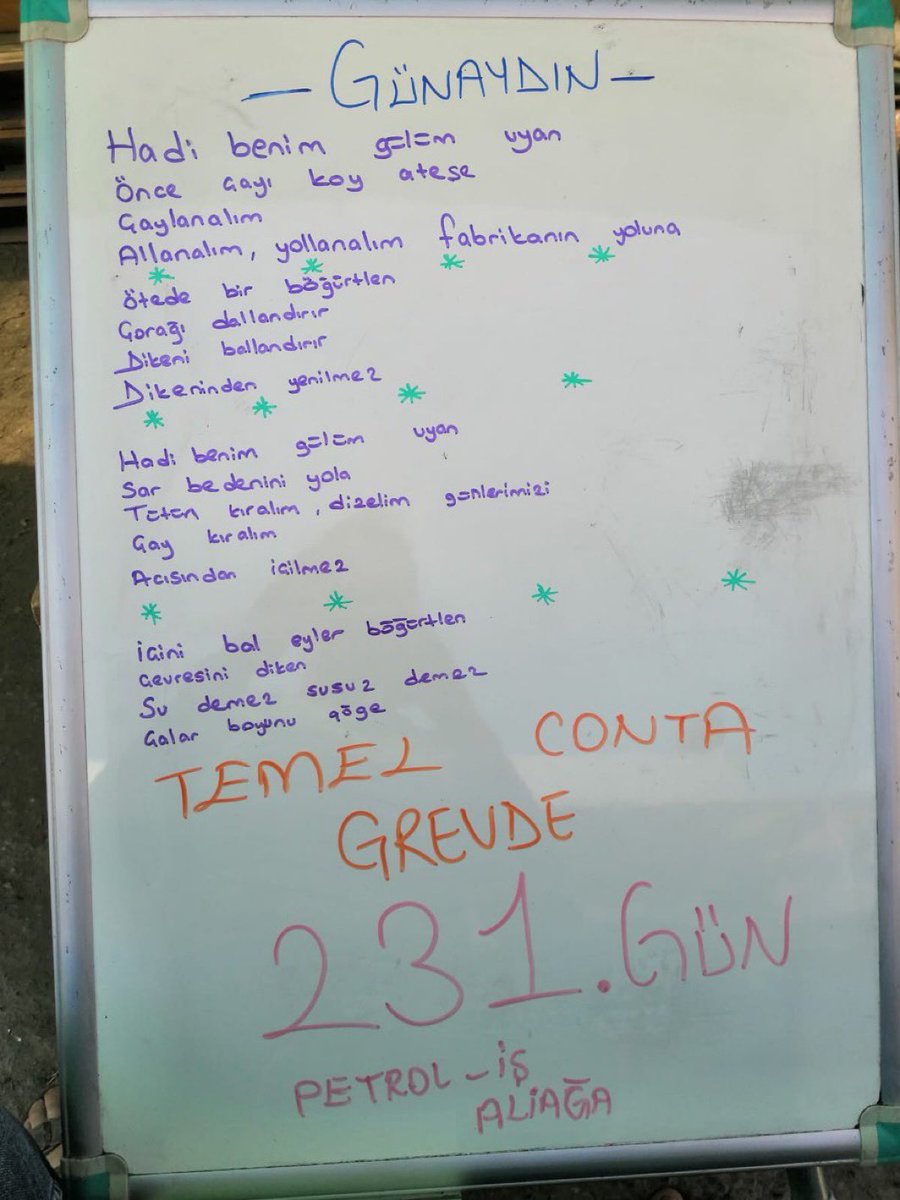 — GÜNAYDIN —
Hadi benim gülüm uyan
Önce çayı koy ateşe
Çaylanalım
Allanalım, yollanalım fabrikanın yoluna
* * * *
Ötede bir böğürtlen
Çorağı dallandırır
Dikeni ballandırır
Dikeninden yenilmez
* * * *
Hadi benim gülüm uyan
Sar bedenini yola
Tütün kıralım, dizelim günlerimizi
Çay kıralım
Acısından içilmez
* * * *
İçini bal eyler böğürtlen
Çevresini diken
Su demez susuz demez
Çalar boyunu göğe
TEMEL CONTA
GREVDE
231.GÜN
PETROL-İŞ
ALİAĞA